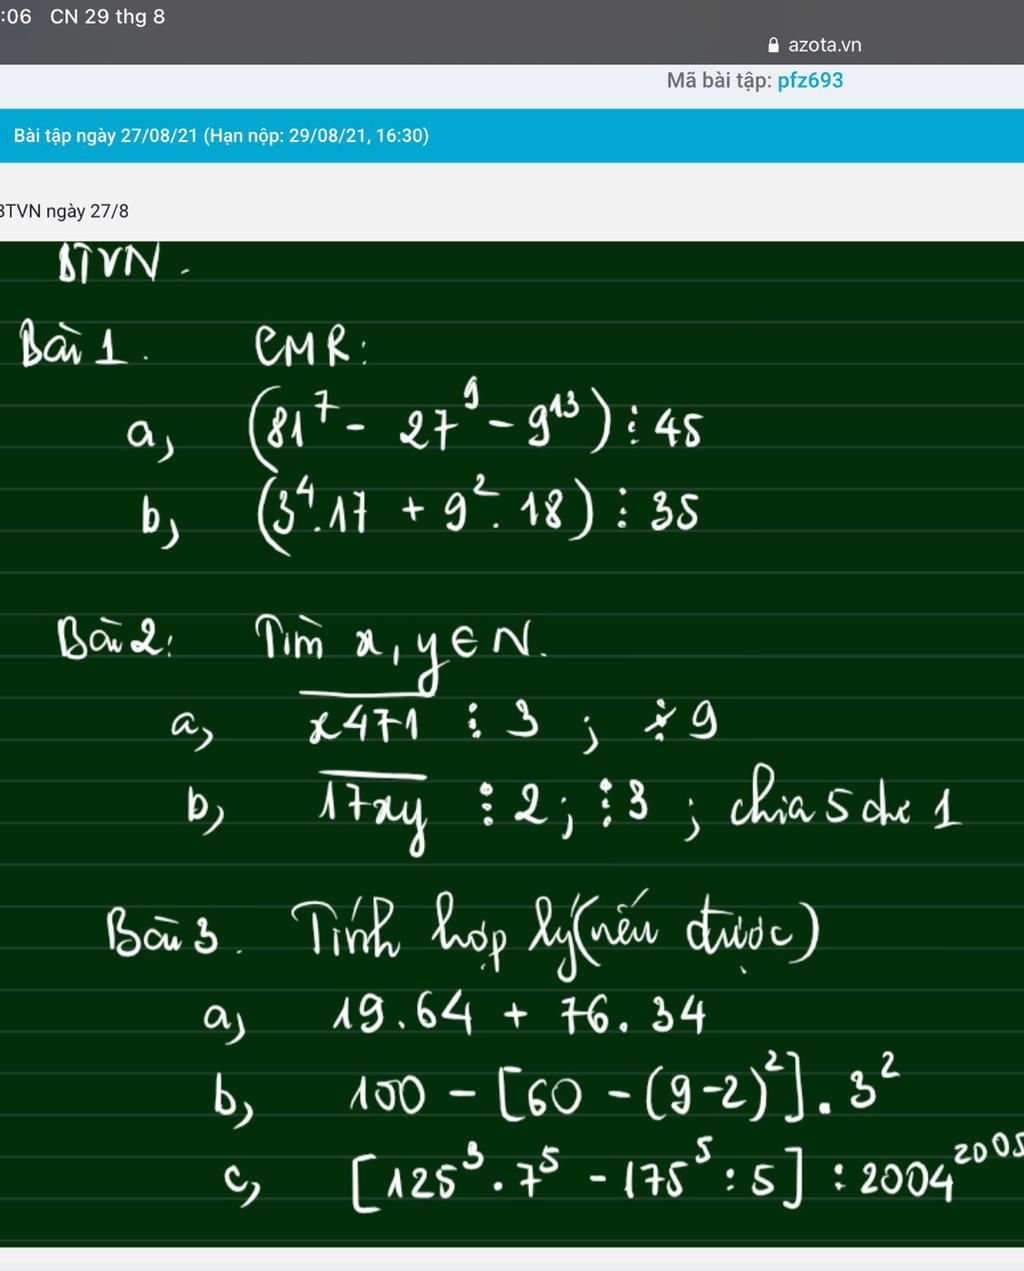 :06 CN 29 thg 8
azota.vn
Mã bài tập: pfz693
Bài tập ngày 27/08/21 (Hạn nộp: 29/08/21, 16:30)
BTVN ngày 27/8
BTVN.
Bài 1. CMR:
a, (81⁷ - 27⁹ - 9¹³) ⋮ 45
b, (3⁴.17 + 9².18) ⋮ 35
Bài 2: Tìm x, y ∈ N.
a, x̅4̅7̅1̅ ⋮ 3 ; ⋮̸ 9
b, 1̅7̅x̅y̅ ⋮ 2; ⋮ 3 ; chia 5 dư 1
Bài 3. Tính hợp lý (nếu được)
a, 19.64 + 76.34
b, 100 - [60 - (9-2)²] . 3²
c, [125³.7⁵ - 175⁵ : 5] : 2004²⁰⁰⁵